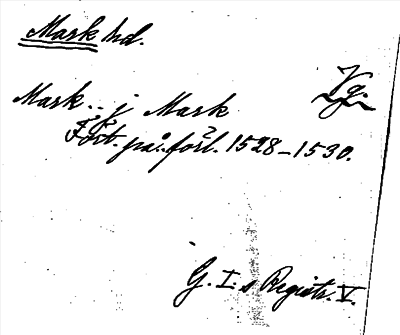 Mark hd.
Vg.
Mark.. j Mark
Fört. på förl. 1528-1530.
G. I:s Registr. V.